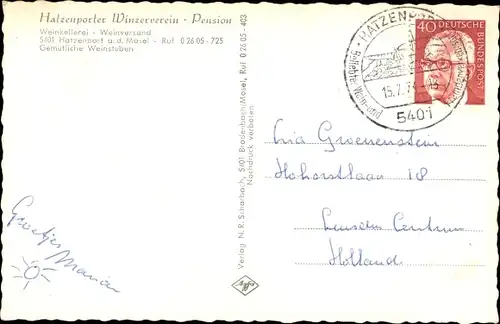 Hatzenporter Winzerverein - Pension
Weinkellerei - Weinversand
5401 Hatzenport a. d. Mosel - Ruf 0 26 05 - 725
Gemütliche Weinstuben
Verlag N. R. Scharbach, 5401 Brodenbach/Mosel, Ruf 0 26 05 - 403
Nachdruck verboten
HATZENPORT
Beliebter Wein- und
15.7.
5401
40
DEUTSCHE
BUNDESPOST
Groetjes
Marian
Ria Groenenstein
Hohorstlaan 18
Leusden Centrum
Holland